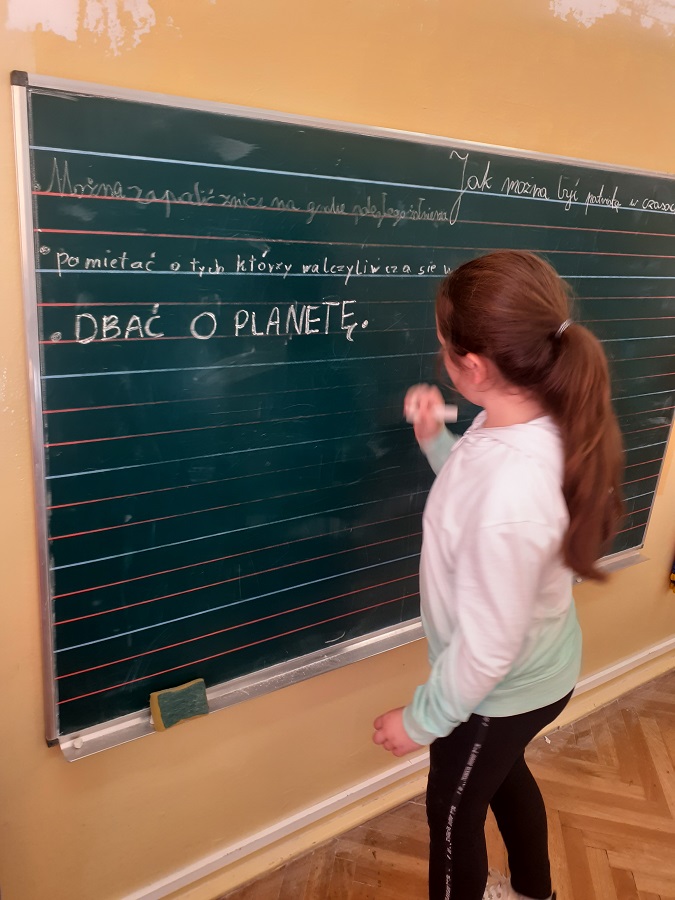 Jak można być patriotą w czasac
Można zapalić znicz na grobie poległego żołnierza
• pomietać o tych którzy walczyli w czasie w
• DBAĆ O PLANETĘ.